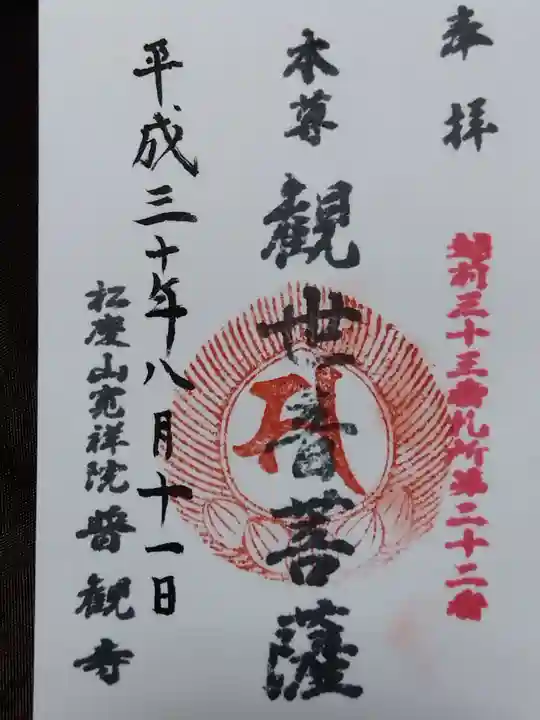 奉拝
越前三十三番札所第二十二番
本尊
観世音菩薩
平成三十年八月十一日
松慶山寛祥院
普観寺